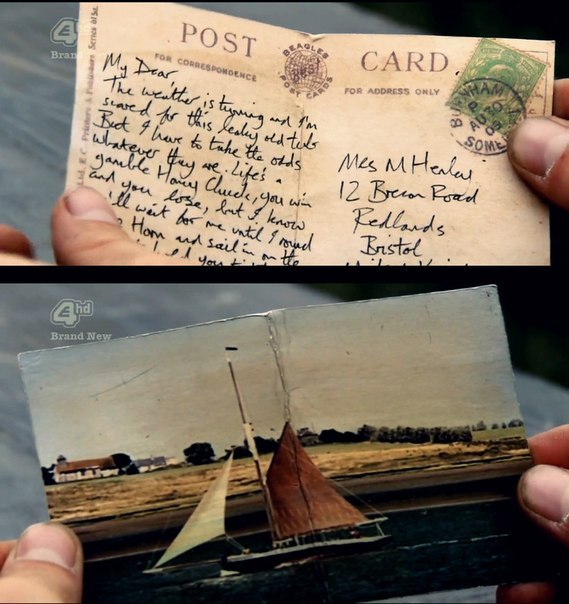 POST CARD
BEAGLES
POST CARDS
FOR CORRESPONDENCE
FOR ADDRESS ONLY
My Dear,
The weather is turning and I'm
scared for this leaky old tub
But I have to take the odds
whatever they are. Life's a
gamble Honey Chuck, you win
and you lose, but I know
'll wait for me until I round
Horn and sail in on the
Mrs M Henley
12 Brecon Road
Redlands
Bristol
Ltd., E.C. Printers & Publishers. Series
SOME
4hd
Brand New